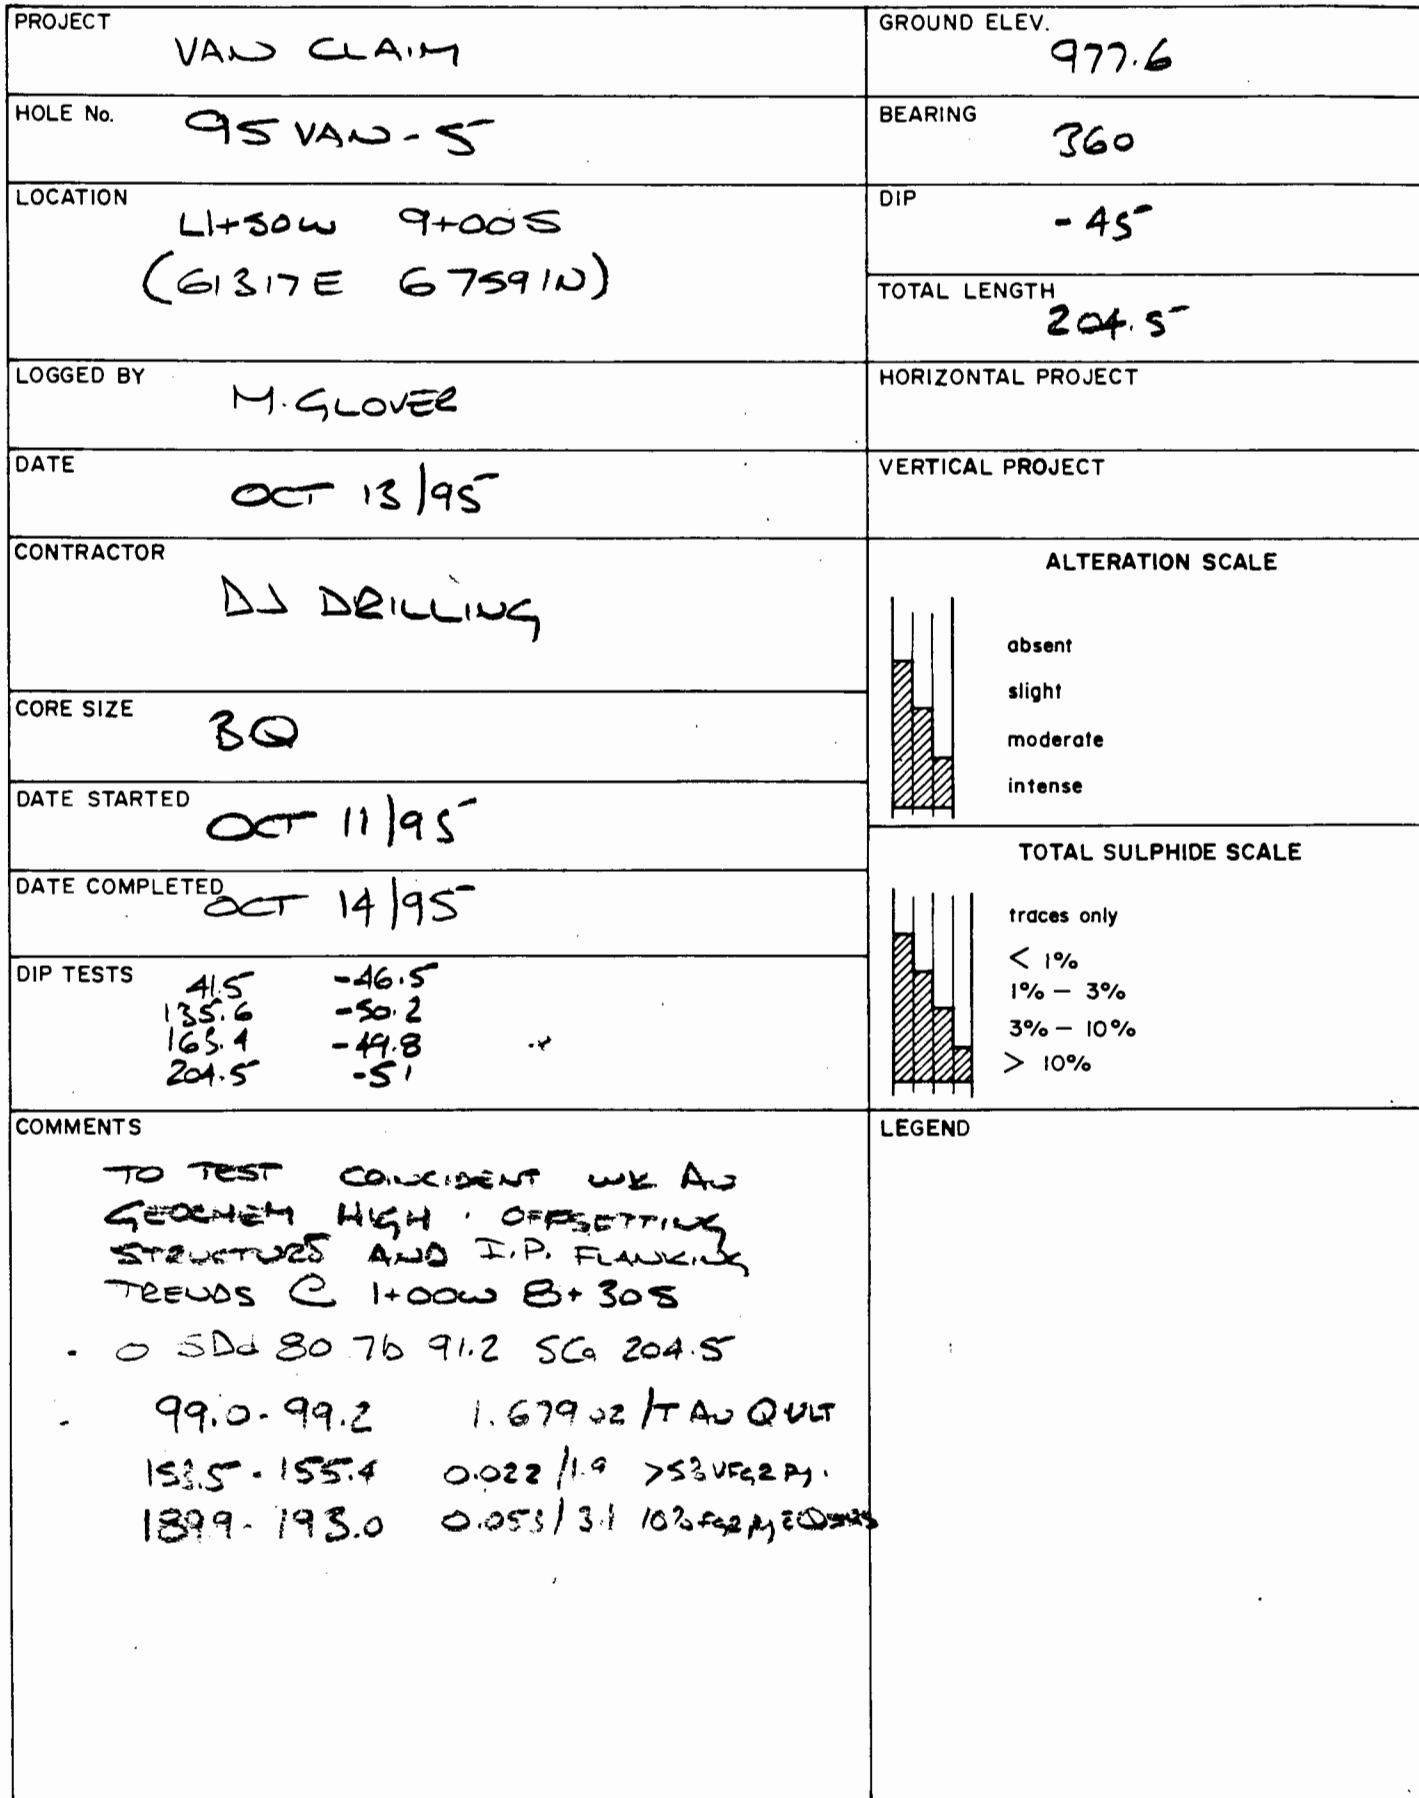 PROJECT
VAN CLAIM
HOLE No.
95 VAN - 5
LOCATION
L1+50W 9+00S
(61317E 67591N)
LOGGED BY
M. GLOVER
DATE
OCT 13/95
CONTRACTOR
DJ DRILLING
CORE SIZE
BQ
DATE STARTED
OCT 11/95
DATE COMPLETED
OCT 14/95
DIP TESTS
41.5 -46.5
135.6 -50.2
163.4 -49.8
204.5 -51
COMMENTS
TO TEST COINCIDENT WK AU
GEOCHEM HIGH . OFFSETTING
STRUCTURES AND I.P. FLANKING
TRENDS @ 1+00W 8+30S
0 5Dd 80 7b 91.2 5Ga 204.5
99.0 - 99.2 1.679 oz/T AU Q VLT
153.5 - 155.4 0.022/1.9 >5% VFG Py.
189.9 - 193.0 0.053/3.1 10%
GROUND ELEV.
977.6
BEARING
360
DIP
-45
TOTAL LENGTH
204.5
HORIZONTAL PROJECT
VERTICAL PROJECT
ALTERATION SCALE
absent
slight
moderate
intense
TOTAL SULPHIDE SCALE
traces only
< 1%
1% – 3%
3% – 10%
> 10%
LEGEND